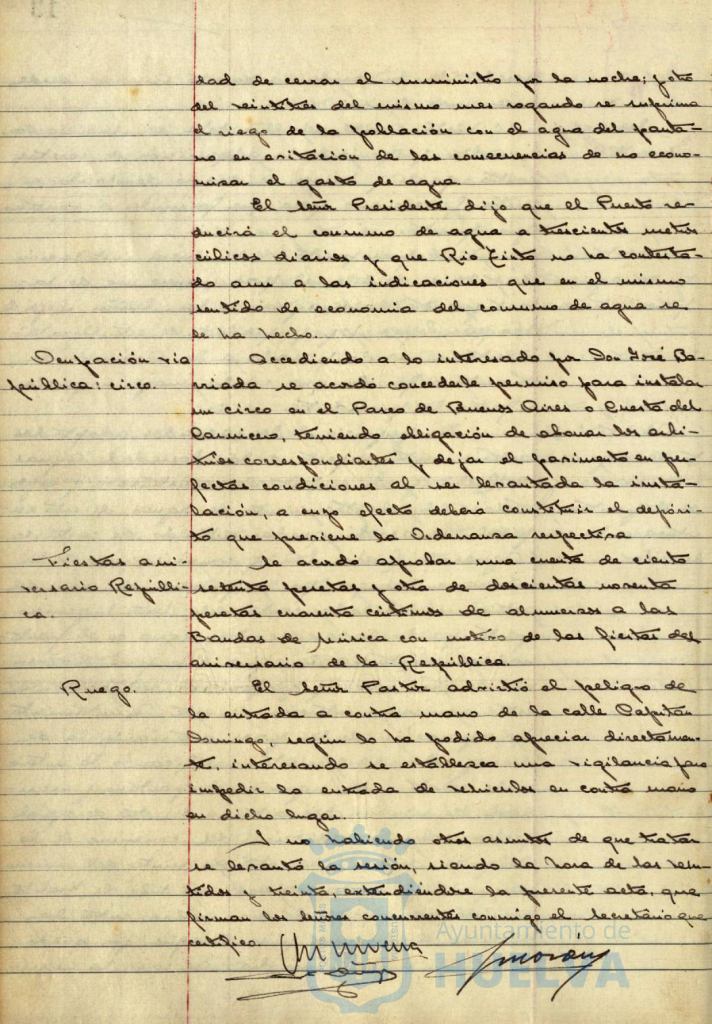 dad de cerrar el suministro por la noche; y otro
del veintitres del mismo mes rogando se suprima
el riego de la población con el agua del panta-
no en evitación de las consecuencias de no econo-
mizar el gasto de agua.
El Señor Presidente dijo que el Puerto re-
ducirá el consumo de agua a trescientos metros
cúbicos diarios y que Rio Tinto no ha contesta-
do aun a las indicaciones que en el mismo
sentido de economia del consumo de agua se
le ha hecho.
Ocupación via
pública: circo.
Accediendo a lo interesado por Don José Ba-
rriada se acordó concederle permiso para instalar
un circo en el Paseo de Buenos Aires o Cuesta del
Carnicero, teniendo obligación de abonar los arbi-
trios correspondientes y dejar el pavimento en per-
fectas condiciones al ser levantada la insta-
lación, a cuyo efecto deberá constituir el depósi-
to que previene la Ordenanza respectiva
Fiestas ani-
versario Repúbli-
ca.
Se acordó aprobar una cuenta de ciento
setenta pesetas y otra de doscientas noventa
pesetas cuarenta céntimos de almuerzos a las
Bandas de Música con motivo de las fiestas del
aniversario de la República.
Ruego.
El Señor Pastor advirtió el peligro de
la entrada a contra mano de la calle Capitán
Domingo, según lo ha podido apreciar directamen-
te, interesando se establezca una vigilancia para
impedir la entrada de vehiculos en contra mano
en dicho lugar.
Y no habiendo otros asuntos de que tratar
se levantó la sesión, siendo la hora de las vein-
tidos y treinta, extendiéndose la presente acta, que
firman los Señores concurrentes conmigo el Secretario que
certifico.
Ayuntamiento de
HUELVA